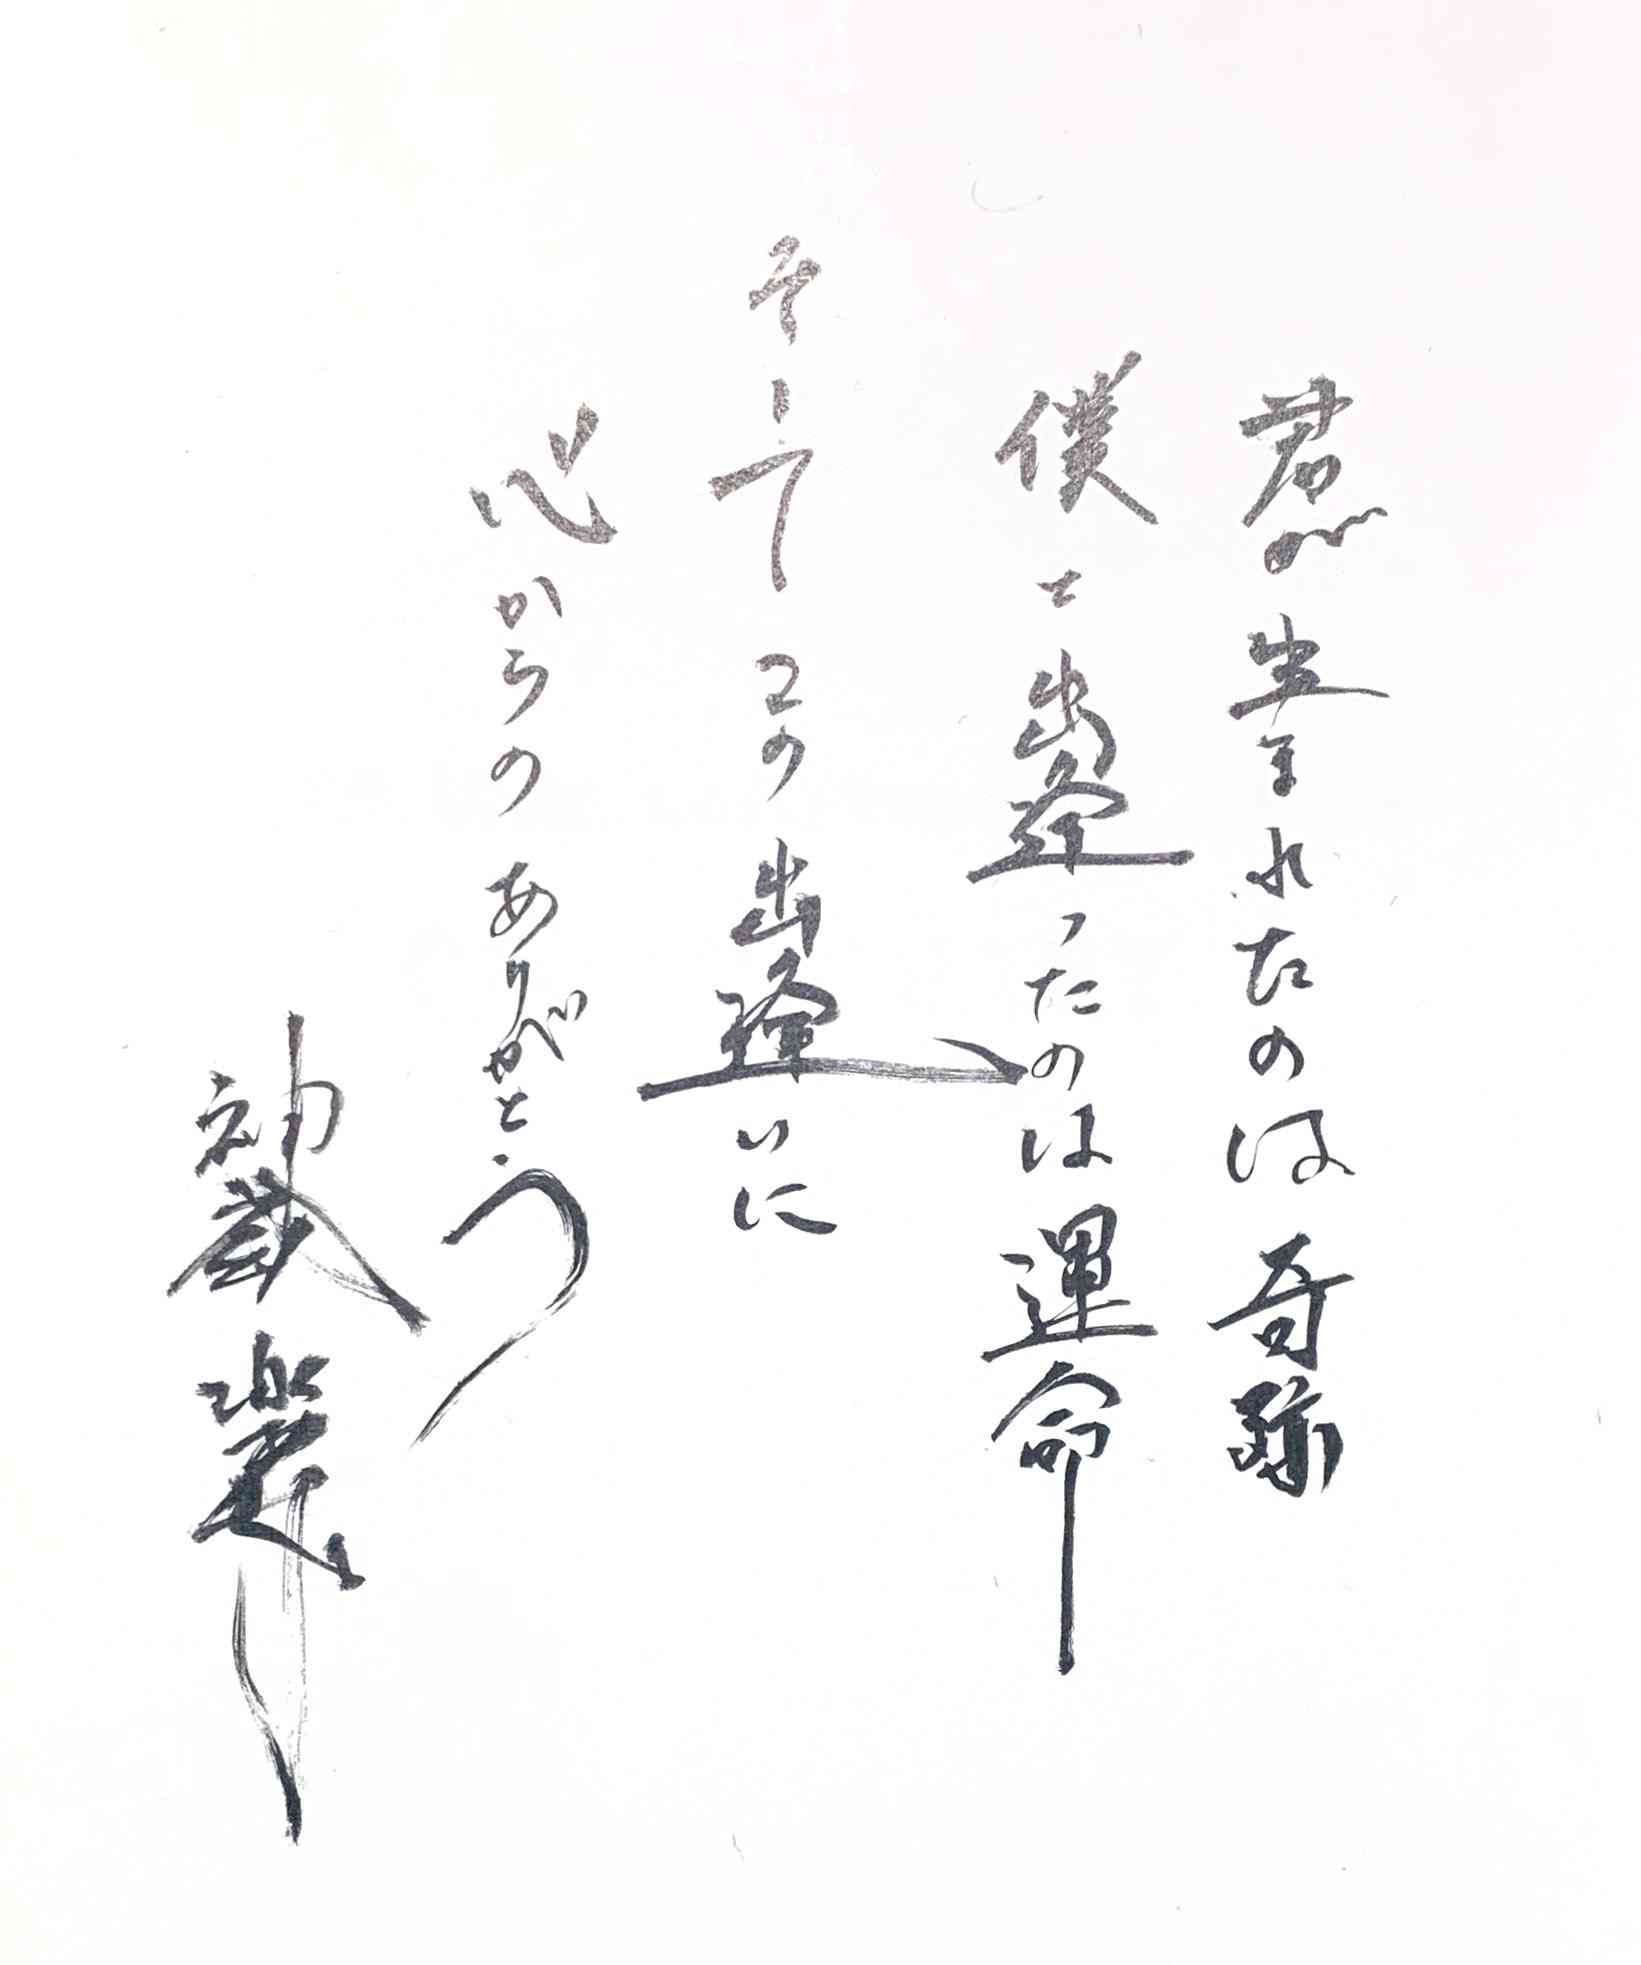 君が生まれたのは奇跡
僕と出逢ったのは運命
そして この出逢いに
心からの ありがとう